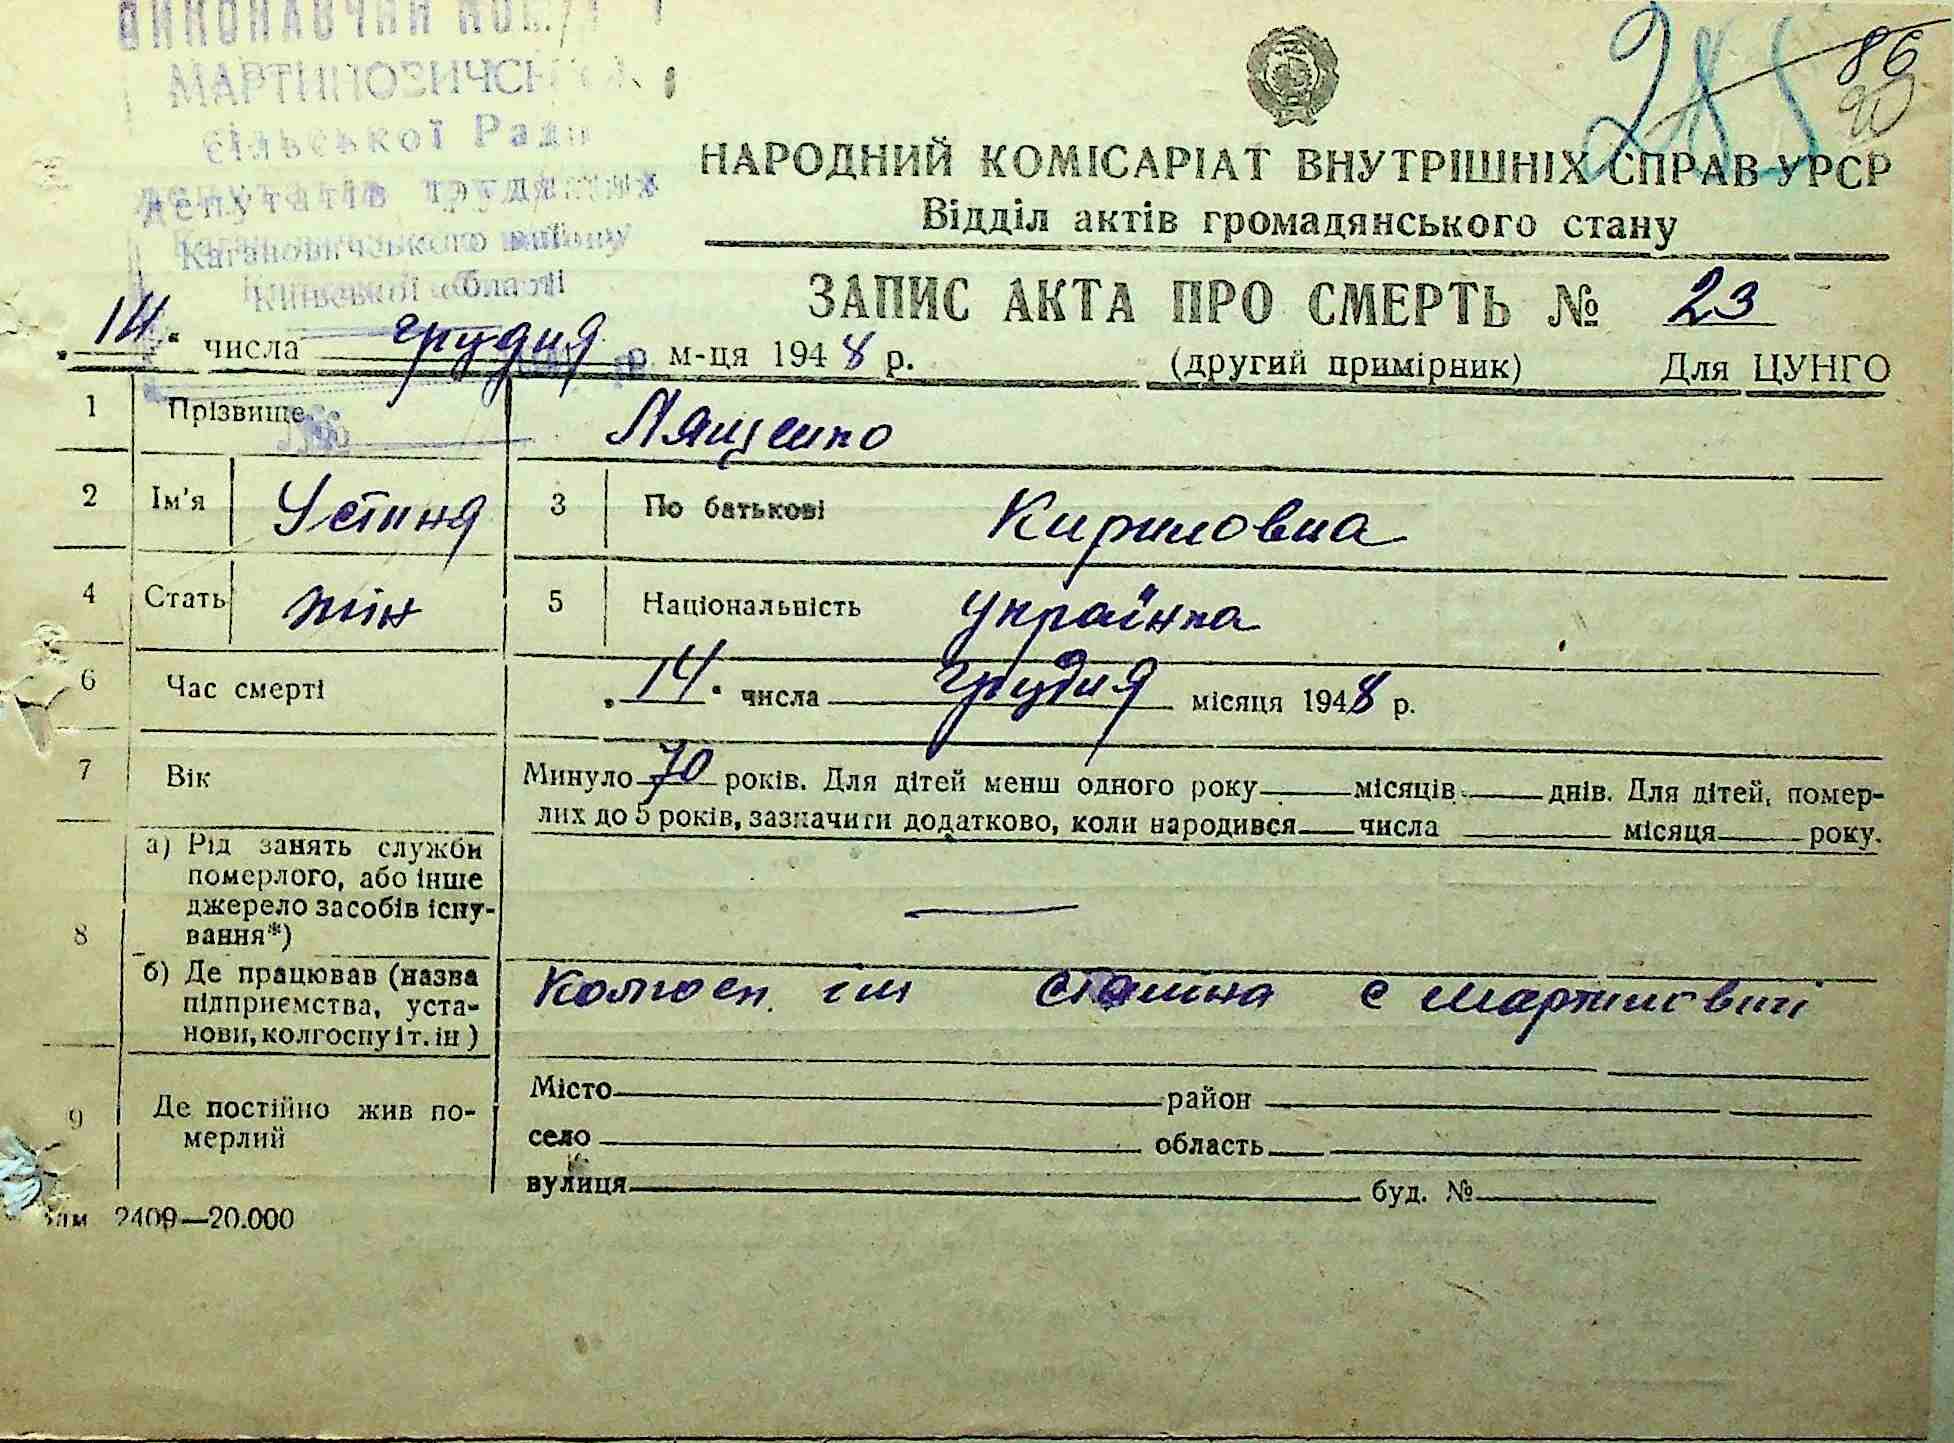 ВИКОНАВЧИЙ КОМ.
МАРТИНОВИЧСЬК
сільської Ради
депутатів трудящих
Кагановичського району
Київської області
285
86
90
НАРОДНИЙ КОМІСАРІАТ ВНУТРІШНІХ СПРАВ УРСР
Відділ актів громадянського стану
ЗАПИС АКТА ПРО СМЕРТЬ № 23
„14“ числа грудня м-ця 1948 р. (другий примірник) Для ЦУНГО
1 Прізвище Лященко
2 Ім'я Устиня 3 По батькові Кириловна
4 Стать жін 5 Національність українка
6 Час смерті „14“ числа грудня місяця 1948 р.
7 Вік Минуло 70 років. Для дітей менш одного року місяців днів. Для дітей, помер-
лих до 5 років, зазначити додатково, коли народився числа місяця року.
8 а) Рід занять служби
померлого, або інше
джерело засобів існу-
вання*) —
б) Де працював (назва
підприємства, уста-
нови, колгоспу і т. ін)
Колгосп. ім Сталіна с Мартиновичі
9 Де постійно жив по-
мерлий
Місто район
село область
вулиця буд. №
Зам 2409—20.000